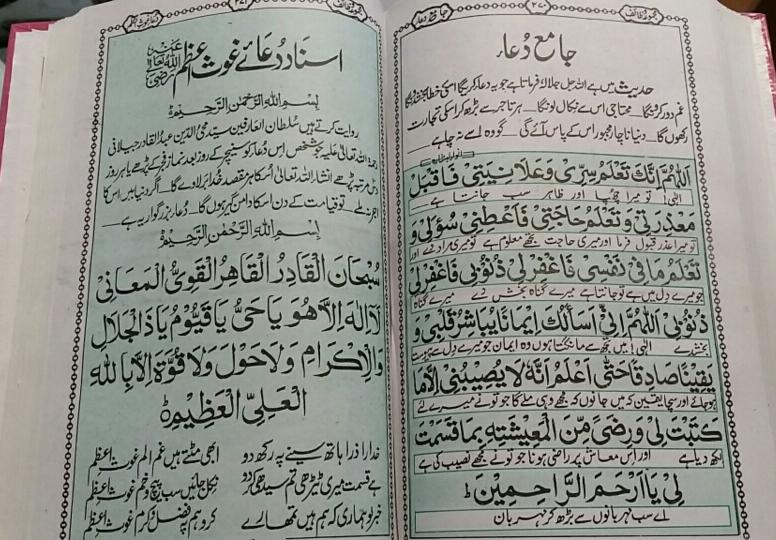 مجموعہ وظائف
۲۷۰
جامع دعا
جامع دعاء
حدیث میں ہے اللہ جل جلالہ فرماتا ہے جو یہ دعا کریگا اسکی خطا بخشدونگا
غم دور کردونگا۔ محتاجی اس سے نکال لونگا۔ ہر تاجر سے بڑھ کر اسکی تجارت
رکھوں گا۔ دنیا ناچار مجبور اس کے پاس آئے گی۔ گو وہ اسے نہ چاہے
اَللّٰهُمَّ اِنَّكَ تَعْلَمُ سِرِّیْ وَعَلَانِیَتِیْ فَاقْبَلْ
الٰہی! تو میرا چھپا اور ظاہر سب جانتا ہے
مَعْذِرَتِیْ وَتَعْلَمُ حَاجَتِیْ فَاَعْطِنِیْ سُؤْلِیْ وَ
تو میرا عذر قبول فرما اور میری حاجت تجھے معلوم ہے تو میری مراد دے اور
تَعْلَمُ مَا فِیْ نَفْسِیْ فَاغْفِرْ لِیْ ذُنُوْبِیْ فَاغْفِرْ لِیْ
جو میرے دل میں ہے تو جانتا ہے میرے گناہ بخش دے میرے گناہ
ذُنُوْبِیْ اَللّٰهُمَّ اِنِّیْ اَسْاَلُكَ اِیْمَانًا یُّبَاشِرُ قَلْبِیْ وَ
بخشدے الٰہی! میں تجھ سے مانگتا ہوں وہ ایمان جو میرے دل سے پیوست
یَقِیْنًا صَادِقًا حَتّٰی اَعْلَمَ اَنَّهٗ لَا یُصِیْبُنِیْ اِلَّا مَا
ہو جائے اور سچا یقین کہ میں جانوں کہ مجھے وہی ملے گا جو تو نے میرے لئے
كَتَبْتَ لِیْ وَرِضًی مِّنَ الْمَعِیْشَتِهٖ بِمَا قَسَمْتَ
لکھ دیا ہے اور اس معاش پر راضی ہونا جو تو نے مجھے نصیب کی ہے
لِیْ یَا اَرْحَمَ الرَّاحِمِیْنَ ط
اے سب مہربانوں سے بڑھ کر مہربان
مجموعہ وظائف
۲۷۱
اسناد دعائے غوث اعظم رضی اللہ تعالیٰ عنہ
بِسْمِ اللهِ الرَّحْمٰنِ الرَّحِیْمِ
روایت کرتے ہیں سلطان العارفین سید محی الدین عبدالقادر جیلانی
رحمۃ اللہ تعالیٰ علیہ جو شخص اس دعا کو سنیچر کے روز بعد نماز فجر کے پڑھے یا ہر روز
دس مرتبہ پڑھے انشاء اللہ تعالیٰ اسکا ہر مقصد خدا بر لاوے گا۔ اگر دنیا میں اس کا
اجر نہ ملے۔ تو قیامت کے دن اسکا دامن گیر ہوں گا۔ دعاء بزرگوار یہ ہے
بِسْمِ اللهِ الرَّحْمٰنِ الرَّحِیْمِ
سُبْحَانَ الْقَادِرُ الْقَاهِرُ الْقَوِیُّ الْمَعَانِیْ
لَا اِلٰهَ اِلَّا هُوَ یَا حَیُّ یَا قَیُّوْمُ یَا ذَا الْجَلَالِ
وَالْاِكْرَامِ وَلَا حَوْلَ وَلَا قُوَّةَ اِلَّا بِاللهِ
الْعَلِیِّ الْعَظِیْمِ ط
خدارا ذرا ہاتھ سینے پہ رکھ دو ابھی مٹتے ہیں غم الم غوث اعظم
ہے قسمت میری ٹیڑھی تم سیدھی کر دو نکل جائیں سب پیچ و خم غوث اعظم
خبر لو ہماری کہ ہم ہیں تمھارے کرو ہم پہ فضل و کرم غوث اعظم